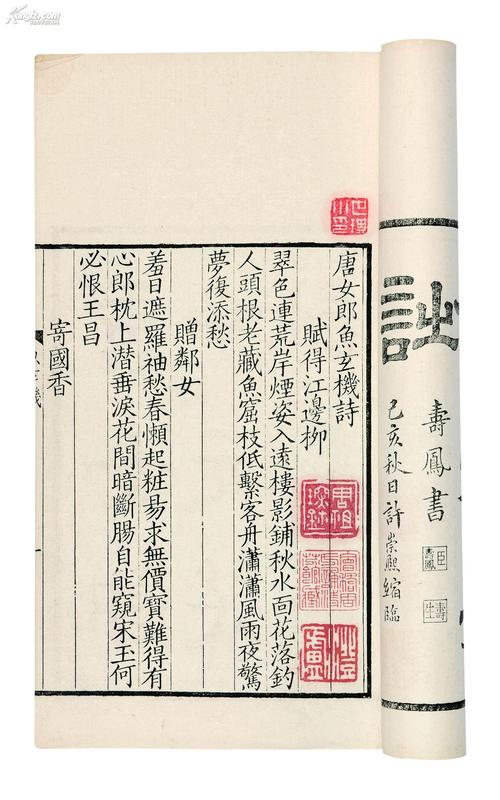 Kongfz.com
詩
壽鳳書
臣壽鳳
壽生
己亥秋日許崇熙縮臨
唐女郎魚玄機詩
賦得江邊柳
翠色連荒岸煙姿入遠樓影鋪秋水面花落釣
人頭根老藏魚窟枝低繫客舟瀟瀟風雨夜驚
夢復添愁
贈鄰女
羞日遮羅袖愁春懶起粧易求無價寶難得有
心郎枕上潛垂淚花間暗斷腸自能窺宋玉何
必恨王昌
寄國香